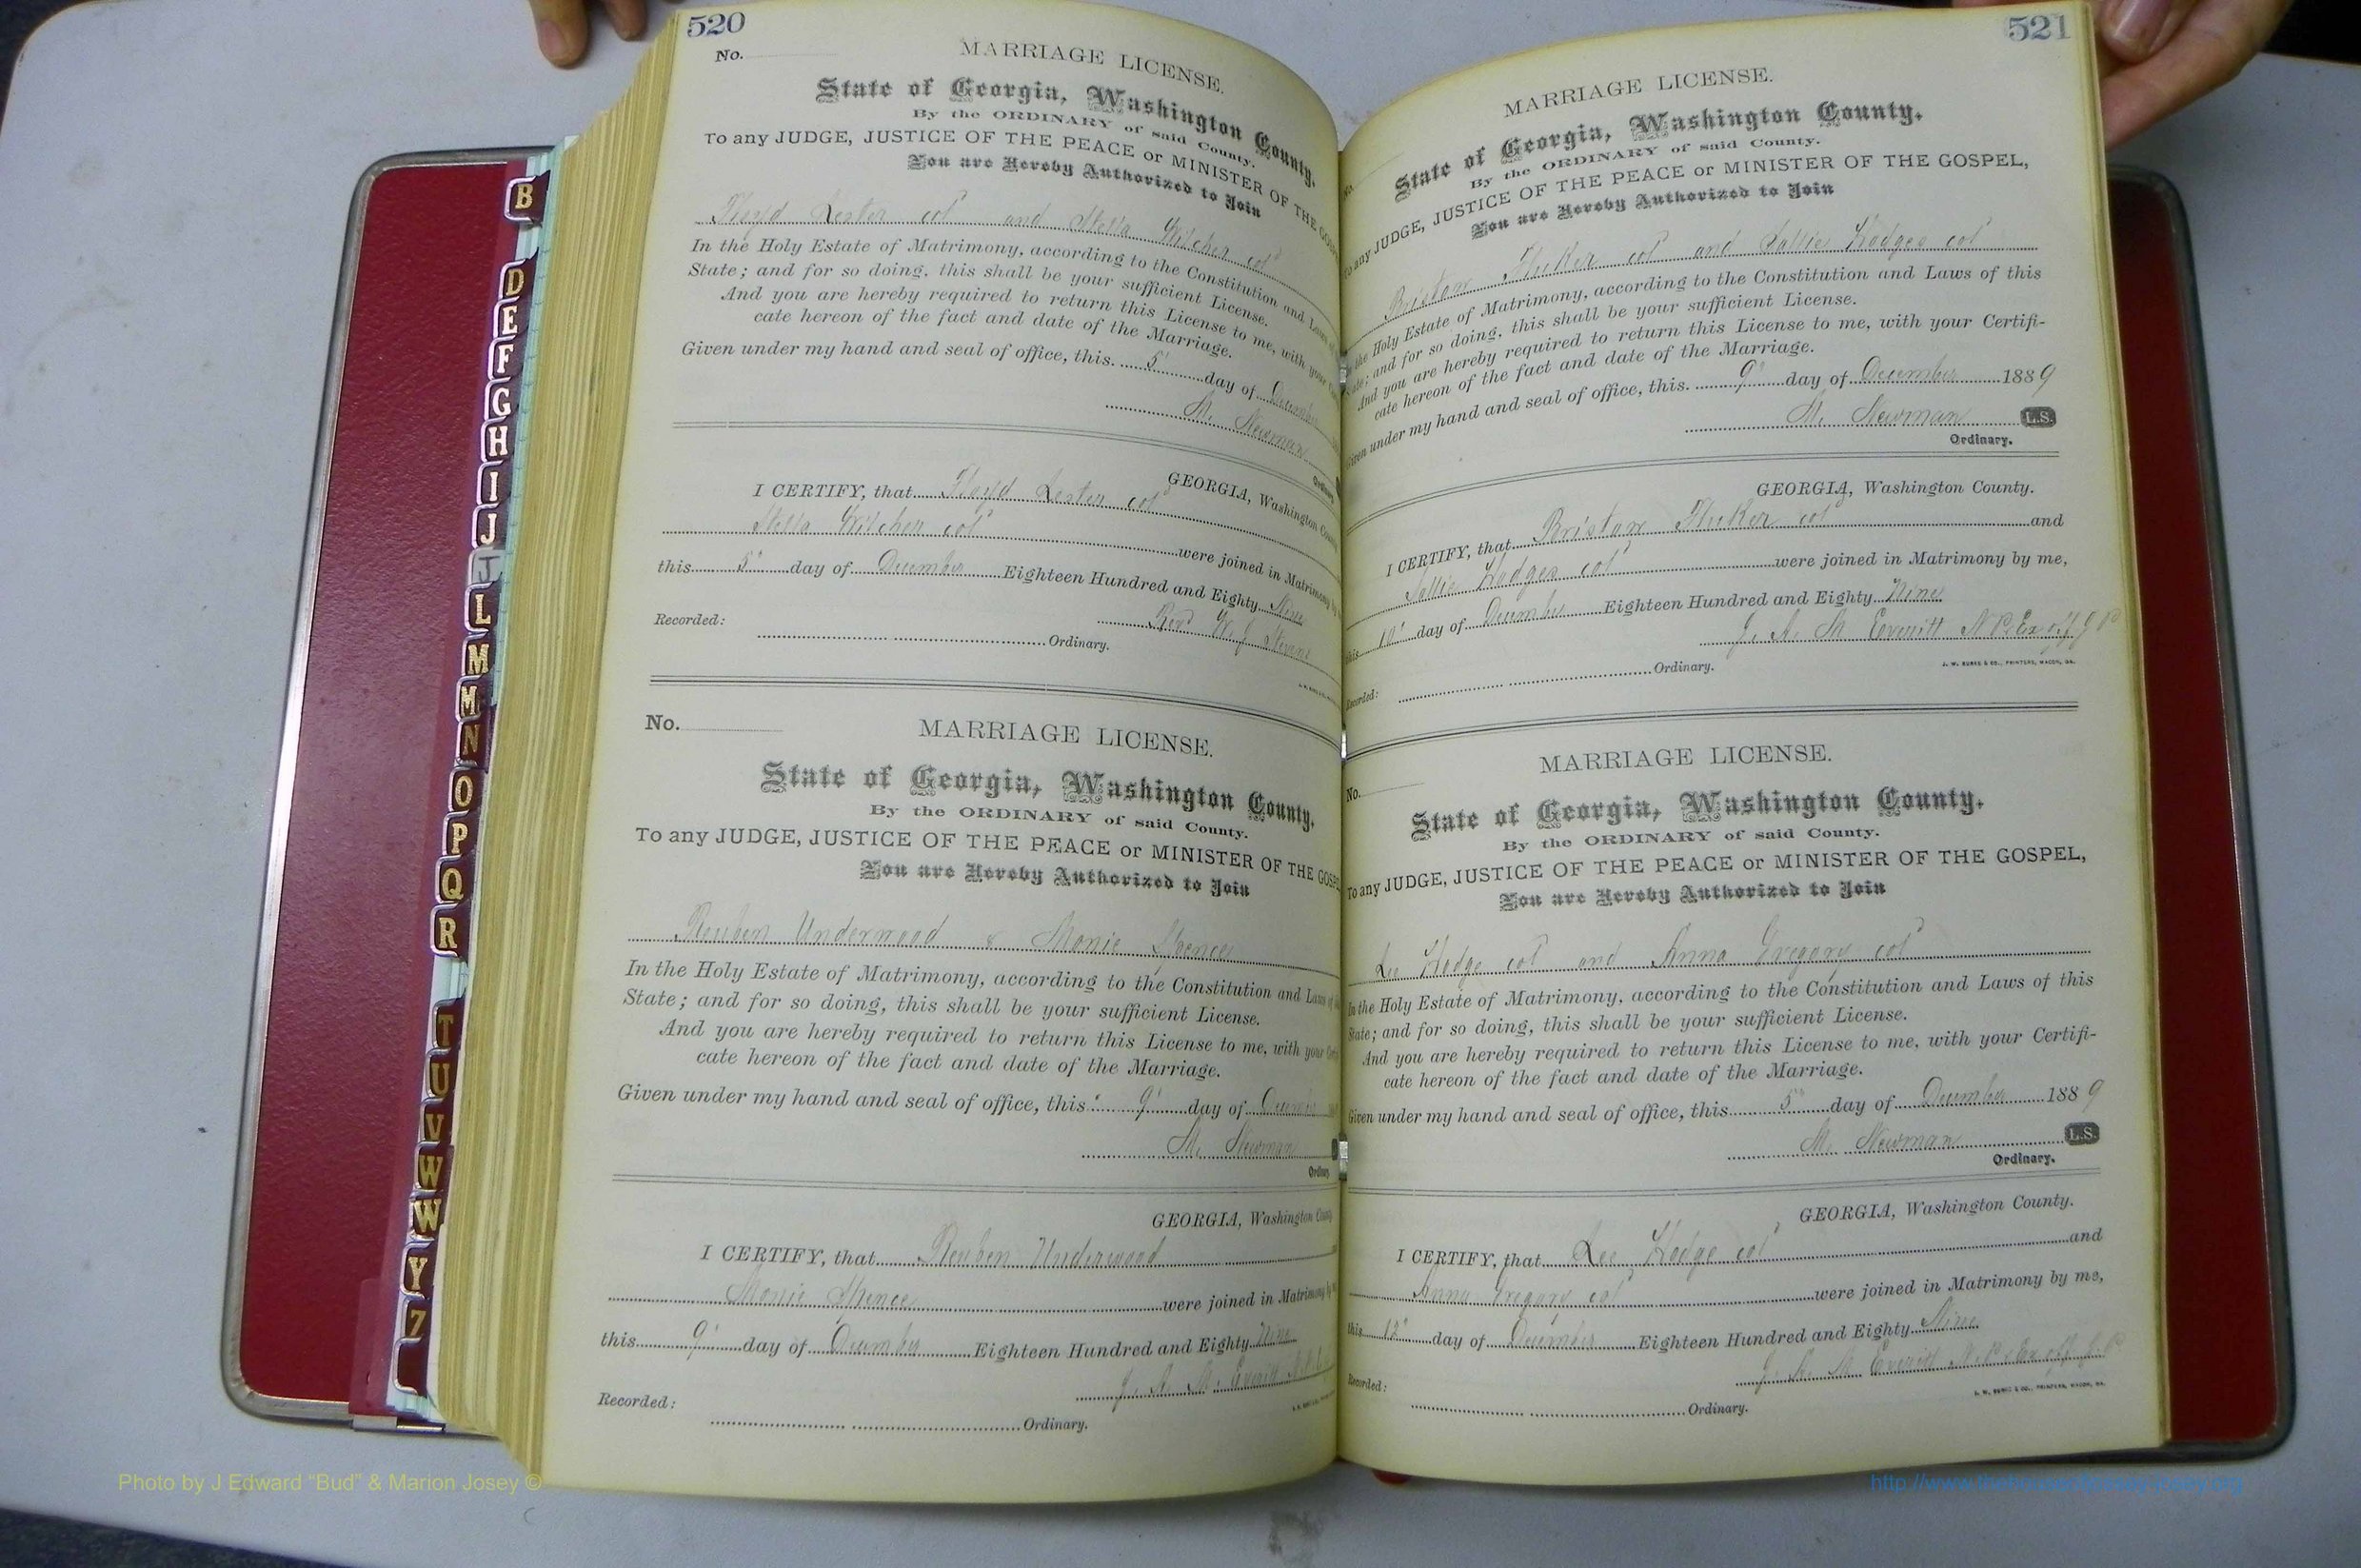 520
No.
MARRIAGE LICENSE.
State of Georgia, Washington County.
By the ORDINARY of said County.
To any JUDGE, JUSTICE OF THE PEACE or MINISTER OF THE GOS
You are Hereby Authorized to Join
Floyd Lester col and Stella col
In the Holy Estate of Matrimony, according to the Constitution and Laws of
State; and for so doing, this shall be your sufficient License.
And you are hereby required to return this License to me, with your
cate hereon of the fact and date of the Marriage.
Given under my hand and seal of office, this 5 day of December
M. Newman
GEORGIA, Washington
I CERTIFY, that Floyd Lester col
Stella col
were joined in Matrimony
this 5 day of December Eighteen Hundred and Eighty Nine
Rev W. J.
Recorded:
Ordinary.
No.
MARRIAGE LICENSE.
State of Georgia, Washington County.
By the ORDINARY of said County.
To any JUDGE, JUSTICE OF THE PEACE or MINISTER OF THE GOSP
You are Hereby Authorized to Join
Reuben Underwood & Monie Spence
In the Holy Estate of Matrimony, according to the Constitution and Laws of
State; and for so doing, this shall be your sufficient License.
And you are hereby required to return this License to me, with your
cate hereon of the fact and date of the Marriage.
Given under my hand and seal of office, this 9 day of December
M. Newman
GEORGIA, Washington
I CERTIFY, that Reuben Underwood
Monie Spence were joined in Matrimony by
this 9 day of December Eighteen Hundred and Eighty Nine
J. A. M. Everitt
Recorded:
Ordinary.
521
No.
MARRIAGE LICENSE.
State of Georgia, Washington County.
By the ORDINARY of said County.
To any JUDGE, JUSTICE OF THE PEACE or MINISTER OF THE GOSPEL,
You are Hereby Authorized to Join
Bristow Fluker col and Sallie Hodges col
the Holy Estate of Matrimony, according to the Constitution and Laws of this
State; and for so doing, this shall be your sufficient License.
And you are hereby required to return this License to me, with your Certifi-
cate hereon of the fact and date of the Marriage.
Given under my hand and seal of office, this 9 day of December 1889
M. Newman L.S.
Ordinary.
GEORGIA, Washington County.
I CERTIFY, that Bristow Fluker col and
Sallie Hodges col were joined in Matrimony by me,
this 10 day of December Eighteen Hundred and Eighty Nine
J. A. M Everitt N P & Ex off J P
Recorded:
Ordinary.
J. W. BURKE & CO., PRINTERS, MACON, GA.
MARRIAGE LICENSE.
No.
State of Georgia, Washington County.
By the ORDINARY of said County.
To any JUDGE, JUSTICE OF THE PEACE or MINISTER OF THE GOSPEL,
You are Hereby Authorized to Join
Lee Hodge col and Anna Gregory col
In the Holy Estate of Matrimony, according to the Constitution and Laws of this
State; and for so doing, this shall be your sufficient License.
And you are hereby required to return this License to me, with your Certifi-
cate hereon of the fact and date of the Marriage.
Given under my hand and seal of office, this 5 day of December 1889
M. Newman L.S.
Ordinary.
GEORGIA, Washington County.
I CERTIFY, that Lee Hodge col and
Anna Gregory col were joined in Matrimony by me,
this 12 day of December Eighteen Hundred and Eighty Nine
J. A. M Everitt N. P. & Ex off J. P
Recorded:
Ordinary.
J. W. BURKE & CO., PRINTERS, MACON, GA.
B
D
E
F
G
H
I
J
J
L
M
M
N
O
P
Q
R
T
U
V
W
W
Y
Z
Photo by J Edward “Bud” & Marion Josey ©